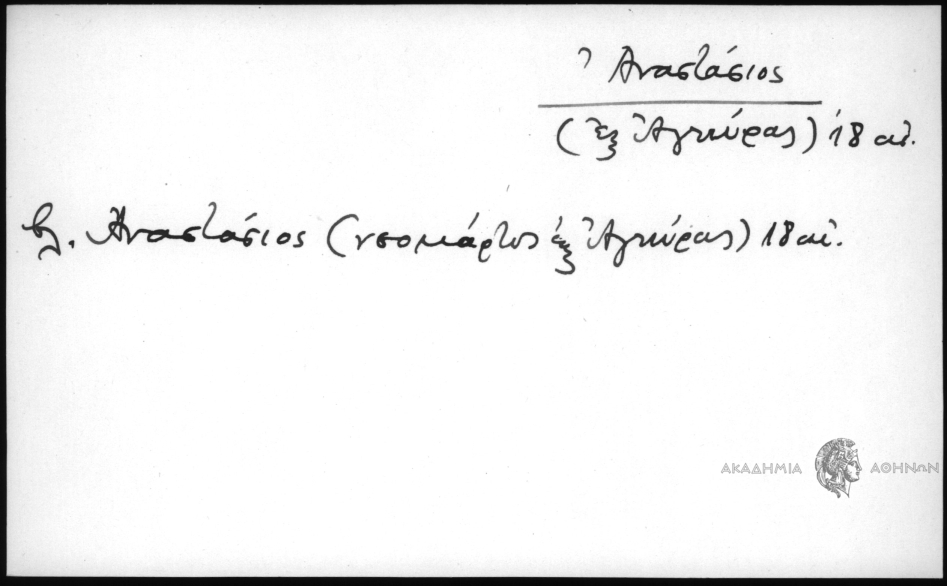 Ἀναστάσιος
(ἐξ Ἀγκύρας) 18 αἰ.
βλ. Ἀναστάσιος (νεομάρτυς ἐξ Ἀγκύρας) 18 αἰ.
ΑΚΑΔΗΜΙΑ ΑΘΗΝΩΝ